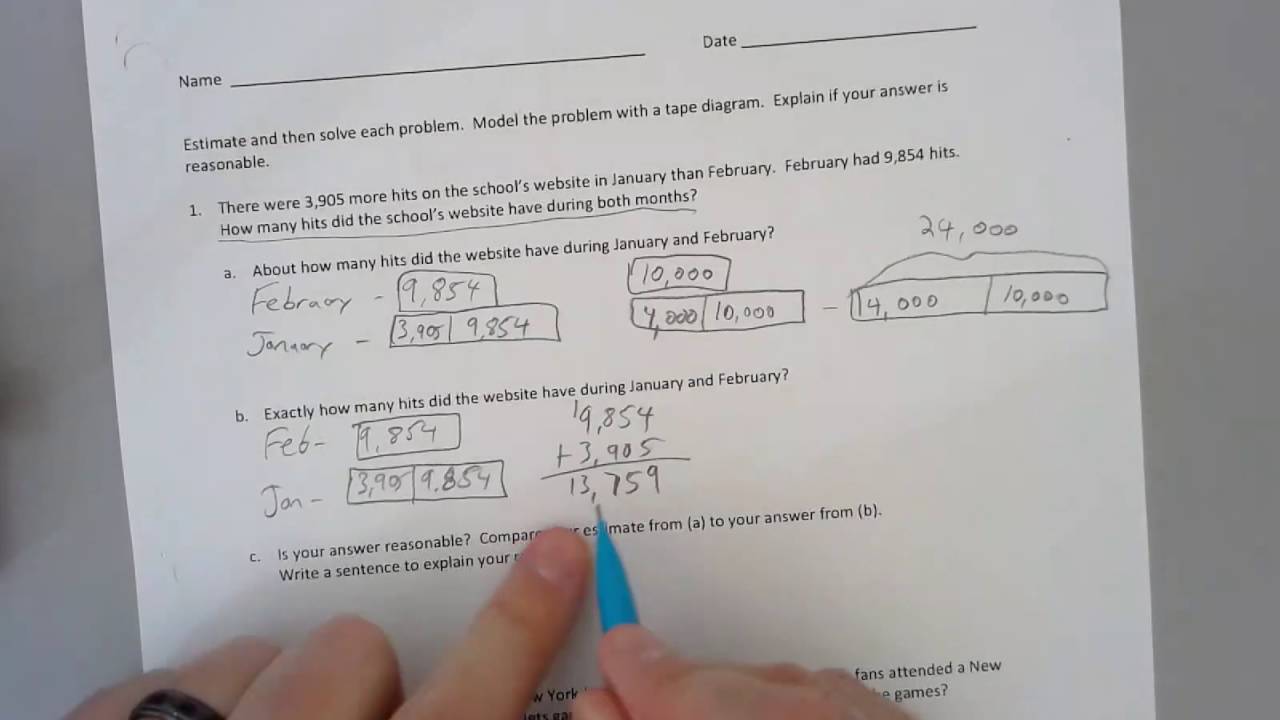 Name
Date
Estimate and then solve each problem. Model the problem with a tape diagram. Explain if your answer is
reasonable.
1. There were 3,905 more hits on the school's website in January than February. February had 9,854 hits.
How many hits did the school's website have during both months?
a. About how many hits did the website have during January and February?
24,000
February - 9,854
10,000
January - 3,905 9,854
4,000 10,000 - 14,000 10,000
b. Exactly how many hits did the website have during January and February?
Feb- 9,854
Jan- 3,905 9,854
1
9,854
+3,905
13,759
c. Is your answer reasonable? Compare estimate from (a) to your answer from (b).
Write a sentence to explain your
York
fans attended a New
games?